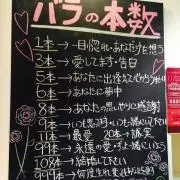 バラの本数
1本→一目惚れ・あなただけを想う
3本→愛しています・告白
5本→あなたに出逢えて心から
6本→あなたに夢中
8本→あなたの思いやりに感謝
9本→いつも想って・一緒に居て下さい
11本→最愛 20本→誠実
99本→永遠の愛・ずっと一緒にいよう
108本→結婚して下さい
999本→何度生まれ変わっても